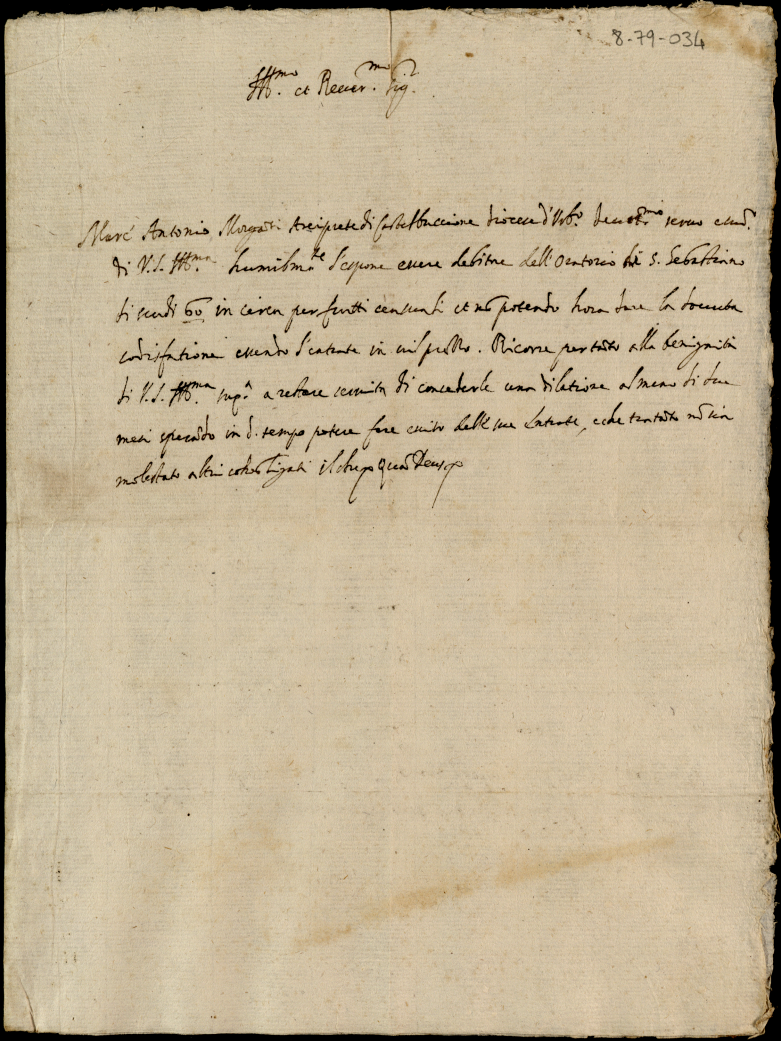 8-79-034
Ill.mo et Rever.mo Sig.r
Marc' Antonio Morganti Arciprete di Castelbuccione diocese d'Urb.o devot.mo servo
di V.S. Ill.ma humilm.te l'espone essere debitore dell'Oratorio di S. Sebastiano
di scudi 60 in circa per frutti censuali et nō potendo hora dare la dovuta
sodisfatione essendo l'entrate in vil prezzo. Ricorre pertāto alla benignità
di V.S. Ill.ma sup.a a restare servita di concederle una dilatione almeno di due
mesi sperādo in d.o tempo potere fare esito delle sue Entrate, e che trattāto nō sia
molestato altri coobligati il che quā Deus